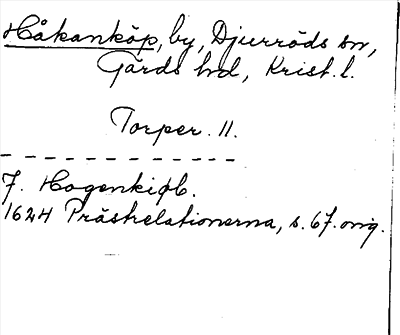 Håkanköp, by, Djurröds sn,
Gärds hd, Krist. l.
Torper. 11.
7. Hogenkiøb.
1624 Prästrelationerna, s. 67. orig.